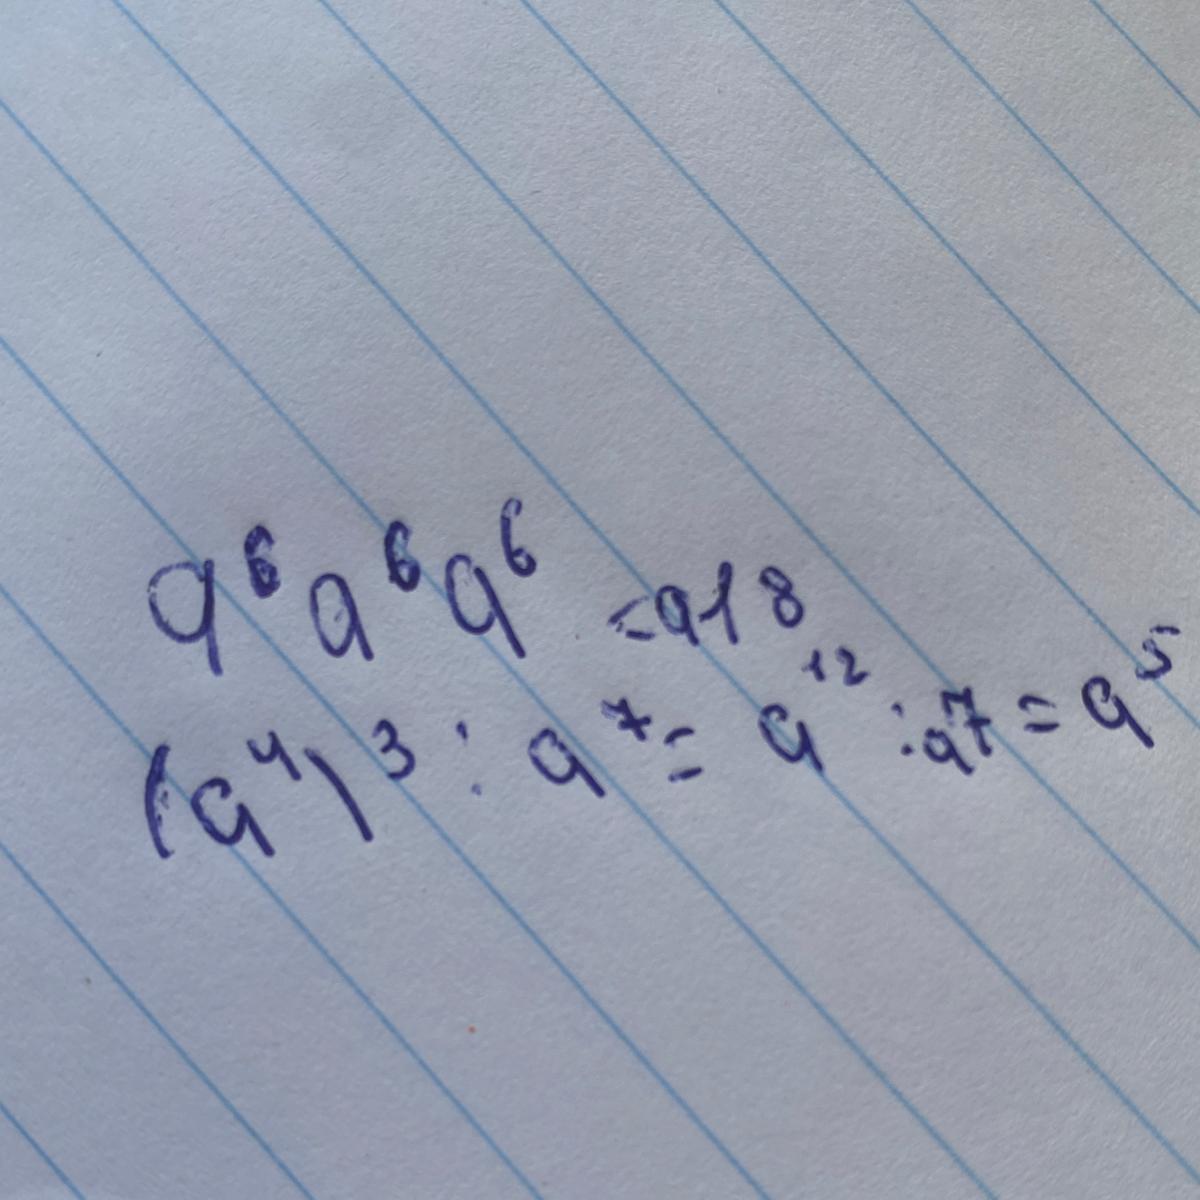 a⁶ a⁶ a⁶ = a18
(a⁴)³ : a⁷ = a¹² : a7 = a⁵